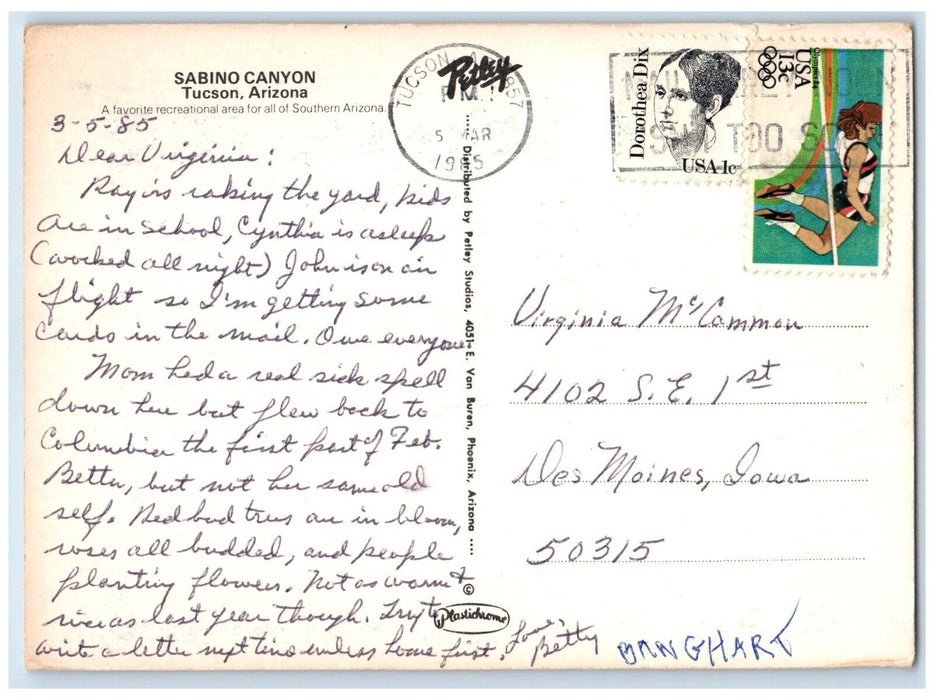 SABINO CANYON
Tucson, Arizona
A favorite recreational area for all of Southern Arizona.
3-5-85
Dear Virginia:
Ray is raking the yard, kids
are in school, Cynthia is asleep
(worked all night) John is on air
flight so I'm getting some
cards in the mail. Owe everyone.
Mom had a real sick spell
down here but flew back to
Columbia the first part of Feb.
Better, but not her same old
self. Redbud trees are in bloom,
roses all budded, and people
planting flowers. Not as warm &
nice as last year though. Try to
write a letter next time unless home first.
Love,
Betty
BANGHART
Petley
.... Distributed by Petley Studios, 4051 E. Van Buren, Phoenix, Arizona ....
©
Plastichrome
TUCSON, A 857
P.M.
5 MAR
1985
Dorothea Dix
USA 1c
Olympics 84
USA
13c
MAIL EARLY
TOO SO
Virginia McCammon
4102 S.E. 1st
Des Moines, Iowa
50315